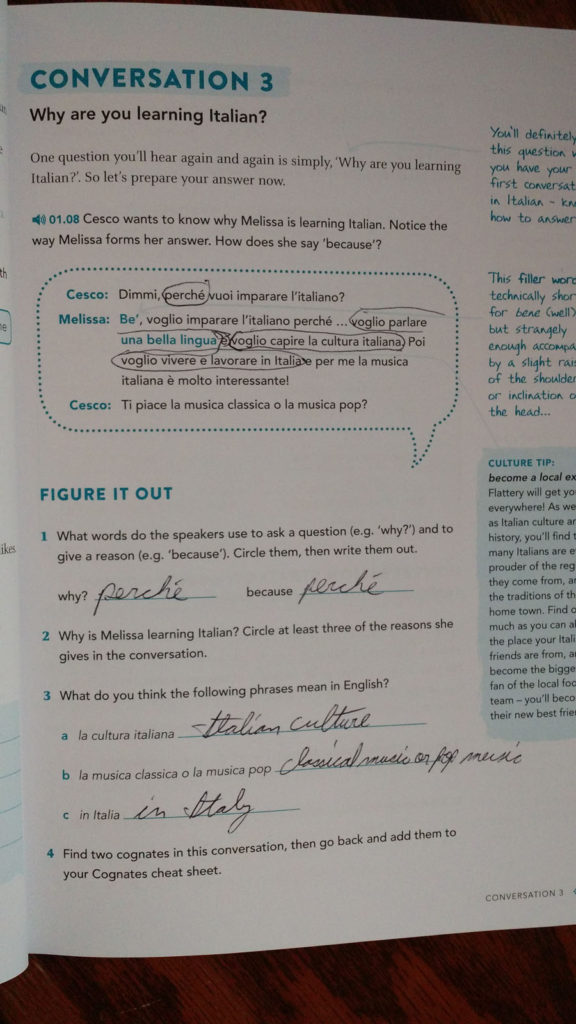 CONVERSATION 3
Why are you learning Italian?
One question you'll hear again and again is simply, 'Why are you learning
Italian?'. So let's prepare your answer now.
01.08 Cesco wants to know why Melissa is learning Italian. Notice the
way Melissa forms her answer. How does she say 'because'?
Cesco: Dimmi, perché vuoi imparare l'italiano?
Melissa: Be', voglio imparare l'italiano perché ... voglio parlare
una bella lingua e voglio capire la cultura italiana. Poi
voglio vivere e lavorare in Italia e per me la musica
italiana è molto interessante!
Cesco: Ti piace la musica classica o la musica pop?
FIGURE IT OUT
1 What words do the speakers use to ask a question (e.g. 'why?') and to
give a reason (e.g. 'because'). Circle them, then write them out.
why? perché because perché
2 Why is Melissa learning Italian? Circle at least three of the reasons she
gives in the conversation.
3 What do you think the following phrases mean in English?
a la cultura italiana Italian culture
b la musica classica o la musica pop classical music or pop music
c in Italia in Italy
4 Find two cognates in this conversation, then go back and add them to
your Cognates cheat sheet.
You'll definitely
this question
you have your
first
in Italian -
how to answer
This filler
technically short
for bene (well)
but strangely
enough
by a slight
of the shoulder
or inclination
the head...
CULTURE TIP:
become a local
Flattery will get
everywhere! As
as Italian culture
history, you'll find
many Italians are
prouder of the
they come from,
the traditions of
home town. Find
much as you can
the place your
friends are from,
become the
fan of the local
team – you'll
their new best
CONVERSATION 3